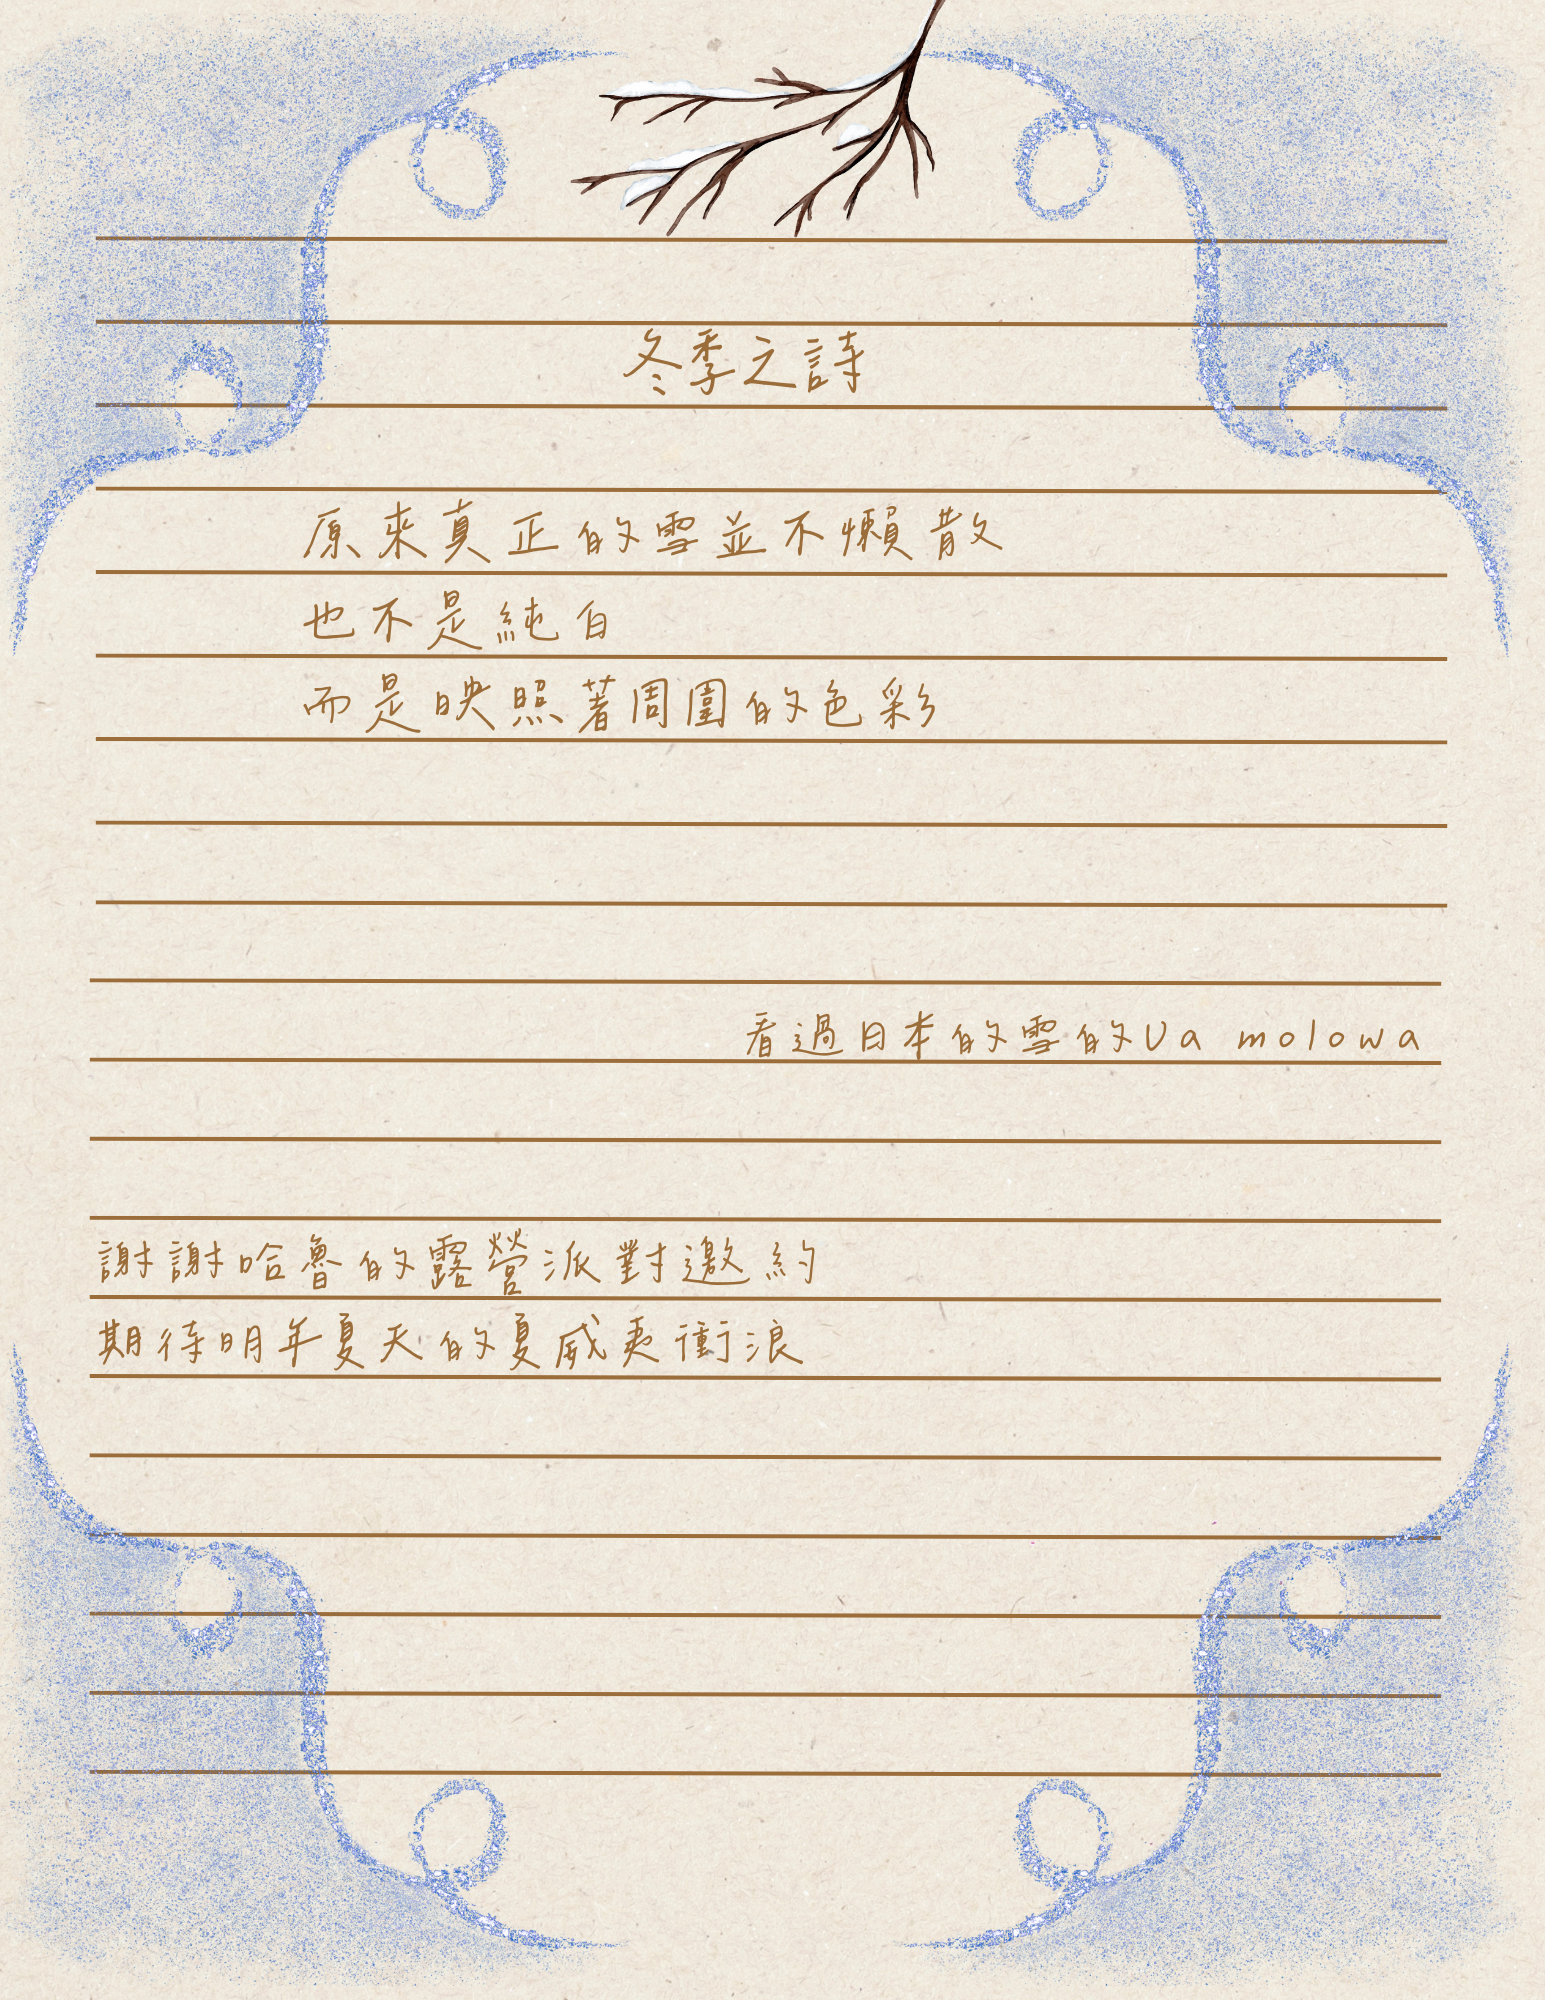 冬季之詩
原來真正的雪並不懶散
也不是純白
而是映照著周圍的色彩
看過日本的雪的Ua molowa
謝謝哈魯的露營派對邀約
期待明年夏天的夏威夷衝浪